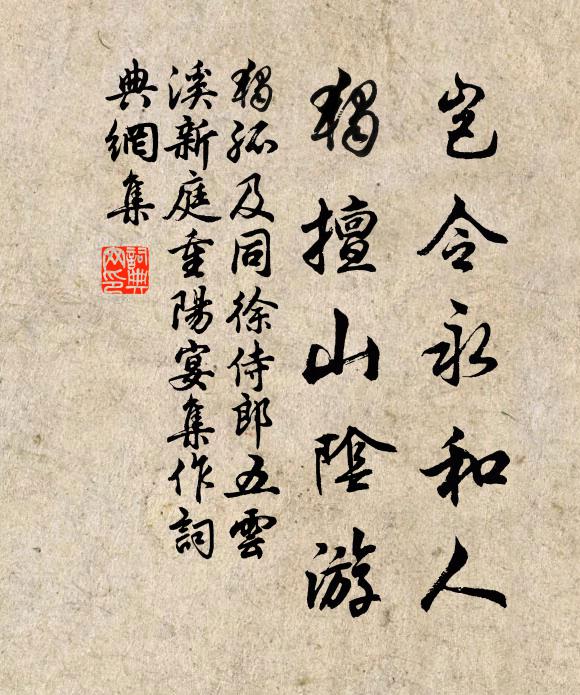 豈令永和人
獨擅山陰游
獨孤及同徐侍郎五雲
溪新庭重陽宴集作詞
典網集
詞典網印